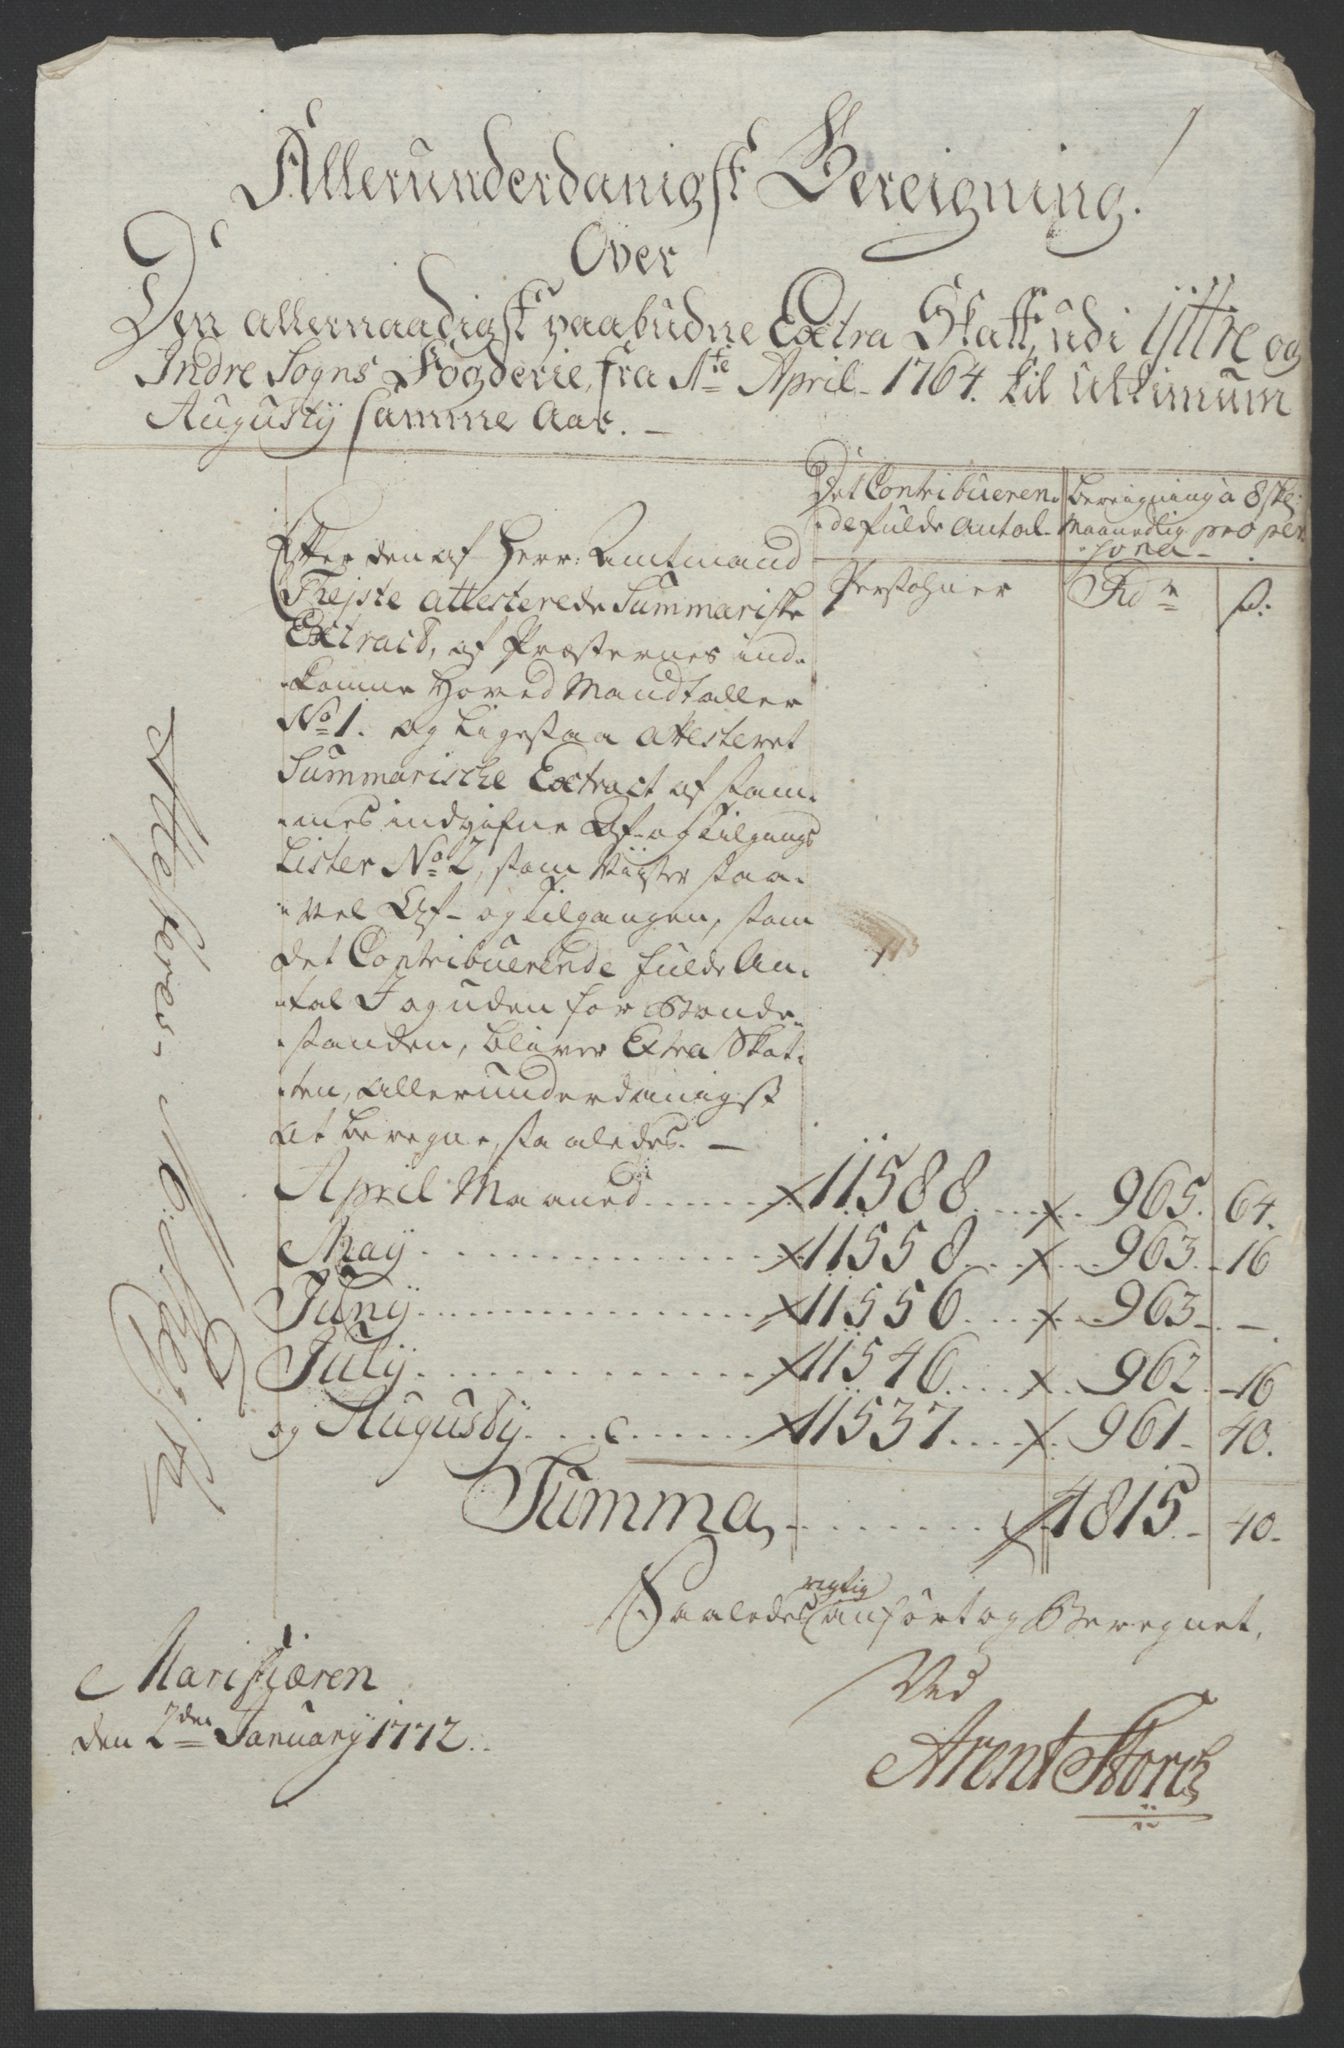 Allerunderdanigst Bereigning.
Over
Den allernaadigst paabudne Extra Skatt, udi Ÿttre og
Indre Sogns Fogderie, fra 1te April 1764. til Ultimum
Augustÿ samme Aar. —
Det Contribueren- Bereigning à 8 sk:
-de fulde Antal. Maanedlig pro per-
-sona -
Persohner Rdr ß:
Efter den af Herr: Amtmand
Thejste attesterede Summariske
Extract, af Præsternes ind-
-komne Hoved Mandtaller
No 1. og ligesaa attesteret
Summariske Extract af sam-
-mes indgifne Af- og Tilgangs
Lister No 2, som viiser saa-
-vel Af- og Tilgangen, som
det Contribuerende fulde An-
-tal I og uden for Bonde-
-standen, bliver Extra Skat-
-ten, allerunderdanigst
at beregne, saaledes. —
April Maaned 11588 965. 64.
May 11558 963. 16
Junÿ 11556 963 -
Julÿ 11546 962. 16
og Augustÿ 11537 961. 40.
Summa 4815. 40.
Saaledes rigtig anført og Beregnet,
Ved
Arent Storch
Marifiæren
den 2den Januarÿ 1772.
Attesteres